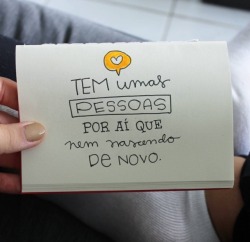 TEM umas
PESSOAS
POR AÍ QUE
nem nascendo
DE NOVO.